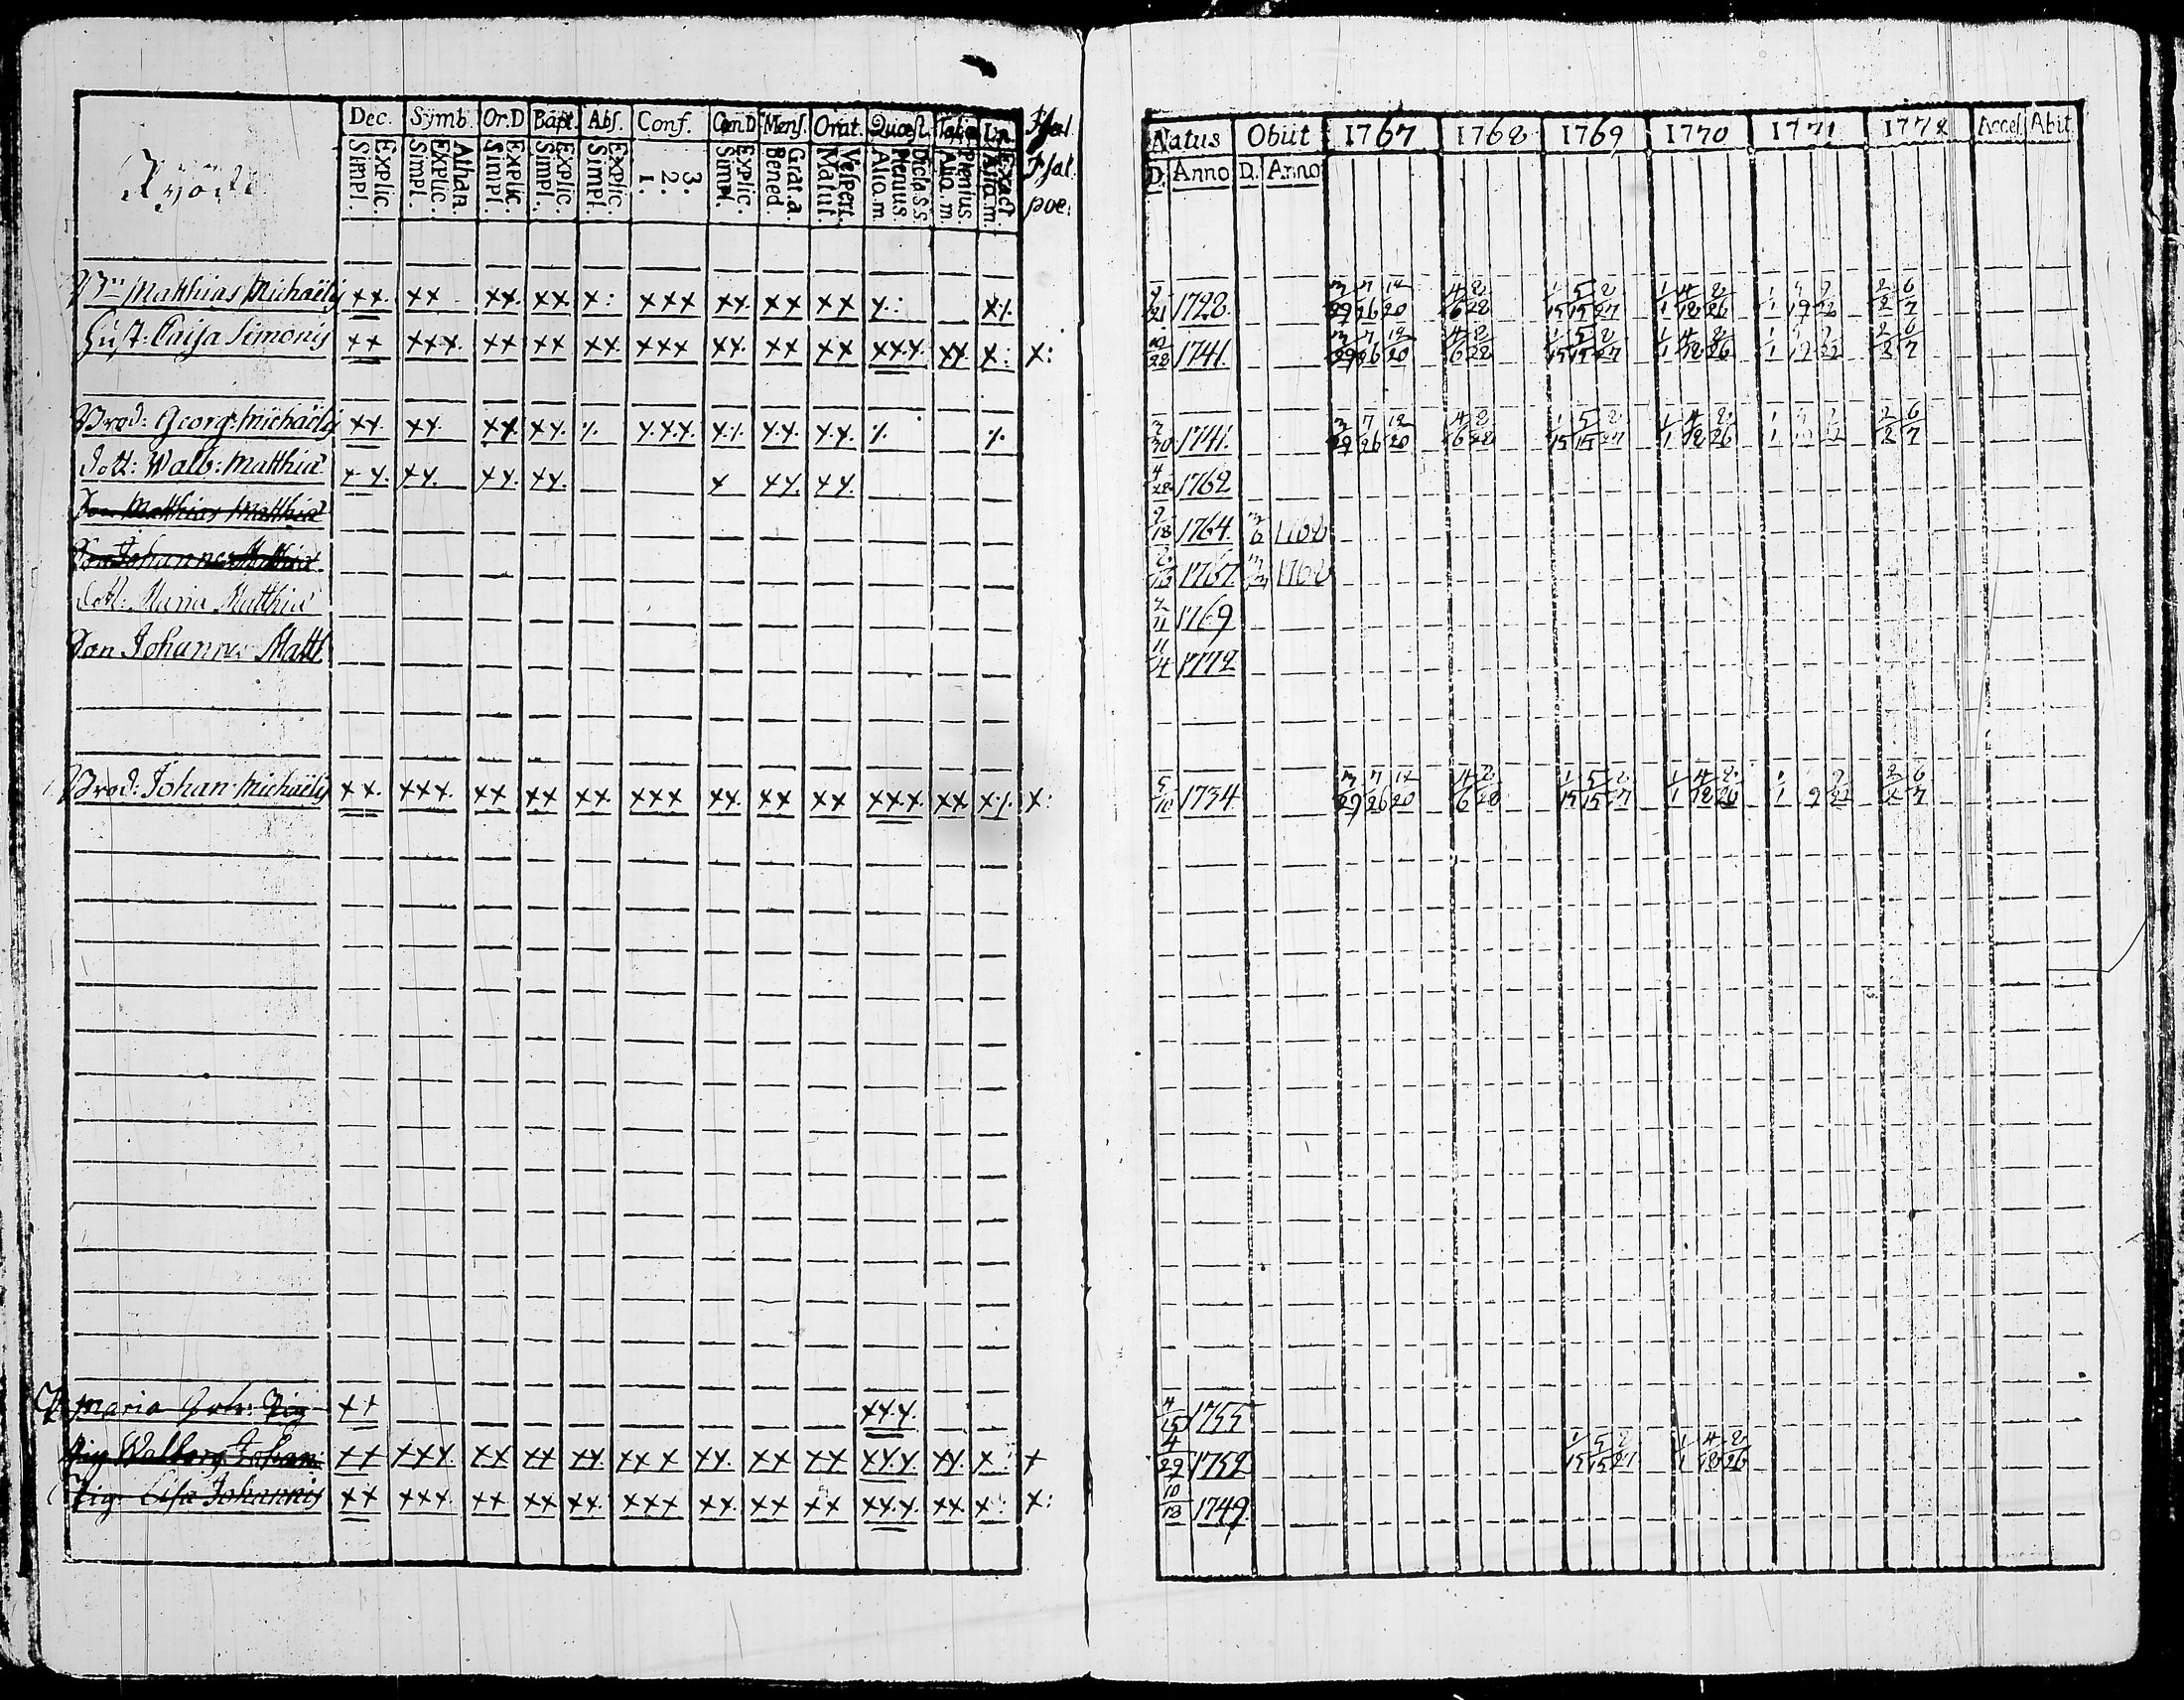 Dec. Symb. Or.D Bapt. Abs. Conf. Cœn.D Mens. Orat. Quæst. Psal.
Explic. Simpl. Athana. Explic. Simpl. Explic. Simpl. Explic. Simpl. Explic. Simpl. 3. 2. 1. Explic. Simpl. Grat.a. Bened. Vespert. Matut. Dicta s.s. Plenius. Aliq.m. Plenius. Aliq.m. Exact. Aliq.m. Psal. poe:
Matthias Michaëlis xx. xx xx. xx x: xxx xx. xx xx x.: x%
Hust: Caisa Simonis xx xxx. xx xx xx. xxx xx. xx xx xxx. xx. x: x:
Brod: Georg: Michaëlis xx. xx. xx. xx. %. x.x.x. x% x.x. x.x. %. %.
Dott: Walb: Matthiæ x x. xx. xx. xx. x xx. xx.
Son Matthias Matthiæ
Son Johannes Matthiæ
Dott: Maria Matthiæ
Son Johannes Matth.
Brod: Johan: Michaëlis xx. xxx. xx xx xx. xxx xx. xx xx xxx. xx x% x:
Maria Joh: Pig xx xx.x.
Pig Walborg Johan: xx xxx. xx xx xx. xx x xx. xx xx xx.x. xx. x: x
Pig: Lisa Johannis xx xxx. xx xx xx. xxx xx. xx xx xx.x. xx. x: x:
Natus Obiit 1767 1768 1769 1770 1771 1772 Accel. Abit.
D. Anno D. Anno
1728. 3/29 7/26 12/20 4/6 2/28 1/15 5/15 2/27 1/1 4/18 2/26 2/2 6/7
10/28 1741. 3/29 7/26 12/20 4/6 2/28 1/15 5/15 2/27 1/1 4/18 2/26 2/2 6/7
3/30 1741. 3/29 7/26 12/20 4/6 2/28 1/15 5/15 2/27 1/1 4/18 2/26 2/2 6/7
4/28 1762
2/18 1764.
1767 1768
1769
11/4 1772
5/10 1734 3/29 7/26 12/20 4/6 2/28 1/15 5/15 2/27 1/1 4/18 2/26 2/2 6/7
4/15 1755
4/29 1752 1/15 5/15 2/27 1/1 4/18 2/26
10/18 1749.